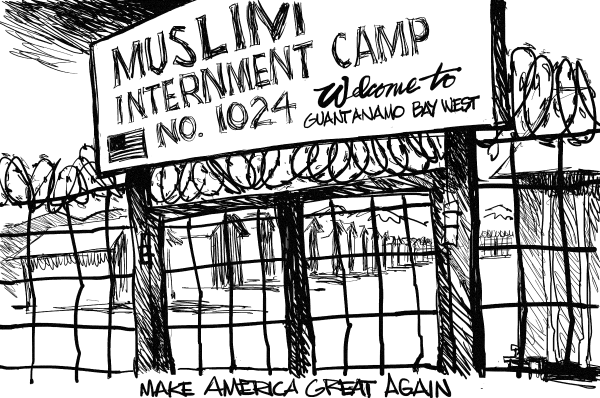 MUSLIM
INTERNMENT CAMP
NO. 1024
Welcome to
GUANTANAMO BAY WEST
MAKE AMERICA GREAT AGAIN